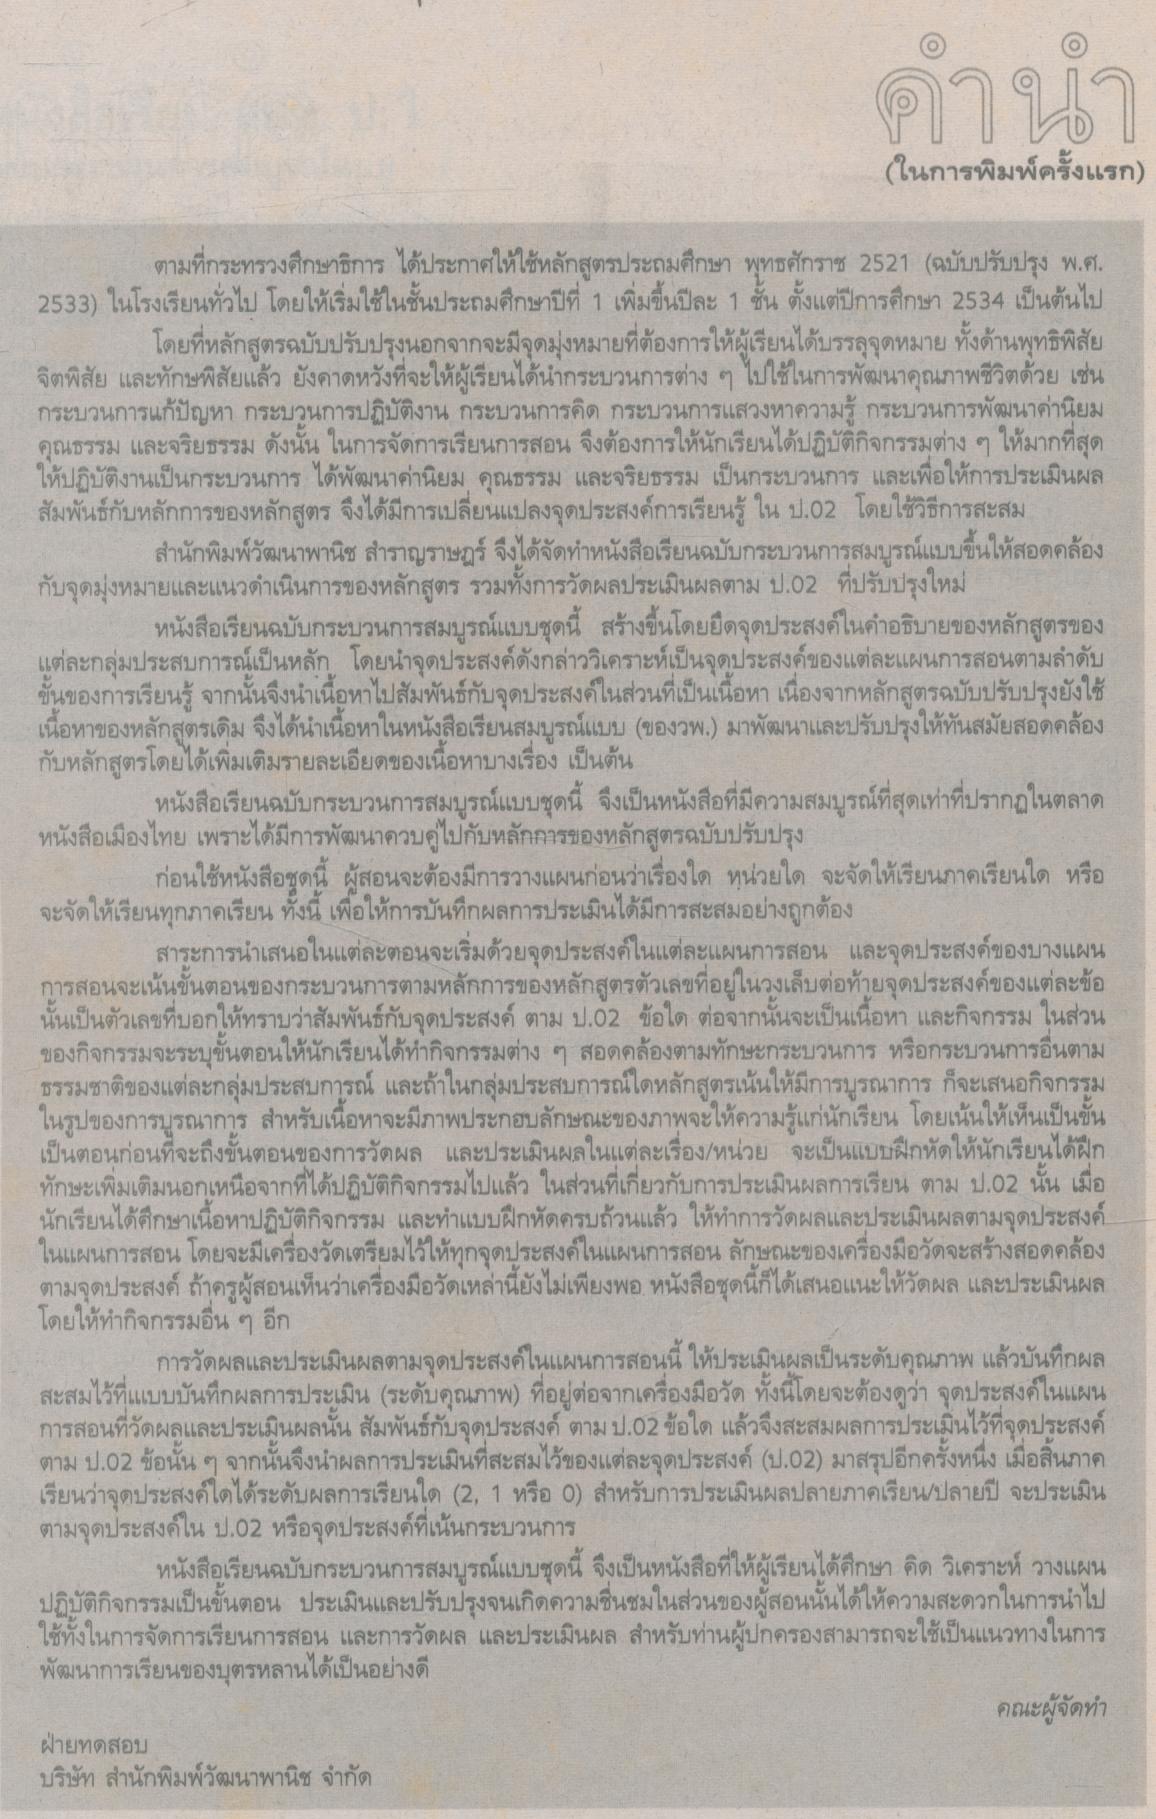 คำนำ
(ในการพิมพ์ครั้งแรก)
ตามที่กระทรวงศึกษาธิการ ได้ประกาศให้ใช้หลักสูตรประถมศึกษา พุทธศักราช 2521 (ฉบับปรับปรุง พ.ศ.
2533) ในโรงเรียนทั่วไป โดยให้เริ่มใช้ในชั้นประถมศึกษาปีที่ 1 เพิ่มขึ้นปีละ 1 ชั้น ตั้งแต่ปีการศึกษา 2534 เป็นต้นไป
โดยที่หลักสูตรฉบับปรับปรุงนอกจากจะมีจุดมุ่งหมายที่ต้องการให้ผู้เรียนได้บรรลุจุดหมาย ทั้งด้านพุทธิพิสัย
จิตพิสัย และทักษพิสัยแล้ว ยังคาดหวังที่จะให้ผู้เรียนได้นำกระบวนการต่าง ๆ ไปใช้ในการพัฒนาคุณภาพชีวิตด้วย เช่น
กระบวนการแก้ปัญหา กระบวนการปฏิบัติงาน กระบวนการคิด กระบวนการแสวงหาความรู้ กระบวนการพัฒนาค่านิยม
คุณธรรม และจริยธรรม ดังนั้น ในการจัดการเรียนการสอน จึงต้องการให้นักเรียนได้ปฏิบัติกิจกรรมต่าง ๆ ให้มากที่สุด
ให้ปฏิบัติงานเป็นกระบวนการ ได้พัฒนาค่านิยม คุณธรรม และจริยธรรม เป็นกระบวนการ และเพื่อให้การประเมินผล
สัมพันธ์กับหลักการของหลักสูตร จึงได้มีการเปลี่ยนแปลงจุดประสงค์การเรียนรู้ ใน ป.02 โดยใช้วิธีการสะสม
สำนักพิมพ์วัฒนาพานิช สำราญราษฎร์ จึงได้จัดทำหนังสือเรียนฉบับกระบวนการสมบูรณ์แบบขึ้นให้สอดคล้อง
กับจุดมุ่งหมายและแนวดำเนินการของหลักสูตร รวมทั้งการวัดผลประเมินผลตาม ป.02 ที่ปรับปรุงใหม่
หนังสือเรียนฉบับกระบวนการสมบูรณ์แบบชุดนี้ สร้างขึ้นโดยยึดจุดประสงค์ในคำอธิบายของหลักสูตรของ
แต่ละกลุ่มประสบการณ์เป็นหลัก โดยนำจุดประสงค์ดังกล่าววิเคราะห์เป็นจุดประสงค์ของแต่ละแผนการสอนตามลำดับ
ขั้นของการเรียนรู้ จากนั้นจึงนำเนื้อหาไปสัมพันธ์กับจุดประสงค์ในส่วนที่เป็นเนื้อหา เนื่องจากหลักสูตรฉบับปรับปรุงยังใช้
เนื้อหาของหลักสูตรเดิม จึงได้นำเนื้อหาในหนังสือเรียนสมบูรณ์แบบ (ของวพ.) มาพัฒนาและปรับปรุงให้ทันสมัยสอดคล้อง
กับหลักสูตรโดยได้เพิ่มเติมรายละเอียดของเนื้อหาบางเรื่อง เป็นต้น
หนังสือเรียนฉบับกระบวนการสมบูรณ์แบบชุดนี้ จึงเป็นหนังสือที่มีความสมบูรณ์ที่สุดเท่าที่ปรากฏในตลาด
หนังสือเมืองไทย เพราะได้มีการพัฒนาควบคู่ไปกับหลักการของหลักสูตรฉบับปรับปรุง
ก่อนใช้หนังสือชุดนี้ ผู้สอนจะต้องมีการวางแผนก่อนว่าเรื่องใด หน่วยใด จะจัดให้เรียนภาคเรียนใด หรือ
จะจัดให้เรียนทุกภาคเรียน ทั้งนี้ เพื่อให้การบันทึกผลการประเมินได้มีการสะสมอย่างถูกต้อง
สาระการนำเสนอในแต่ละตอนจะเริ่มด้วยจุดประสงค์ในแต่ละแผนการสอน และจุดประสงค์ของบางแผน
การสอนจะเน้นขั้นตอนของกระบวนการตามหลักการของหลักสูตรตัวเลขที่อยู่ในวงเล็บต่อท้ายจุดประสงค์ของแต่ละข้อ
นั้นเป็นตัวเลขที่บอกให้ทราบว่าสัมพันธ์กับจุดประสงค์ ตาม ป.02 ข้อใด ต่อจากนั้นจะเป็นเนื้อหา และกิจกรรม ในส่วน
ของกิจกรรมจะระบุขั้นตอนให้นักเรียนได้ทำกิจกรรมต่าง ๆ สอดคล้องตามทักษะกระบวนการ หรือกระบวนการอื่นตาม
ธรรมชาติของแต่ละกลุ่มประสบการณ์ และถ้าในกลุ่มประสบการณ์ใดหลักสูตรเน้นให้มีการบูรณาการ ก็จะเสนอกิจกรรม
ในรูปของการบูรณาการ สำหรับเนื้อหาจะมีภาพประกอบลักษณะของภาพจะให้ความรู้แก่นักเรียน โดยเน้นให้เห็นเป็นขั้น
เป็นตอนก่อนที่จะถึงขั้นตอนของการวัดผล และประเมินผลในแต่ละเรื่อง/หน่วย จะเป็นแบบฝึกหัดให้นักเรียนได้ฝึก
ทักษะเพิ่มเติมนอกเหนือจากที่ได้ปฏิบัติกิจกรรมไปแล้ว ในส่วนที่เกี่ยวกับการประเมินผลการเรียน ตาม ป.02 นั้น เมื่อ
นักเรียนได้ศึกษาเนื้อหาปฏิบัติกิจกรรม และทำแบบฝึกหัดครบถ้วนแล้ว ให้ทำการวัดผลและประเมินผลตามจุดประสงค์
ในแผนการสอน โดยจะมีเครื่องวัดเตรียมไว้ให้ทุกจุดประสงค์ในแผนการสอน ลักษณะของเครื่องมือวัดจะสร้างสอดคล้อง
ตามจุดประสงค์ ถ้าครูผู้สอนเห็นว่าเครื่องมือวัดเหล่านี้ยังไม่เพียงพอ หนังสือชุดนี้ก็ได้เสนอแนะให้วัดผล และประเมินผล
โดยให้ทำกิจกรรมอื่น ๆ อีก
การวัดผลและประเมินผลตามจุดประสงค์ในแผนการสอนนี้ ให้ประเมินผลเป็นระดับคุณภาพ แล้วบันทึกผล
สะสมไว้ที่แแบบบันทึกผลการประเมิน (ระดับคุณภาพ) ที่อยู่ต่อจากเครื่องมือวัด ทั้งนี้โดยจะต้องดูว่า จุดประสงค์ในแผน
การสอนที่วัดผลและประเมินผลนั้น สัมพันธ์กับจุดประสงค์ ตาม ป.02 ข้อใด แล้วจึงสะสมผลการประเมินไว้ที่จุดประสงค์
ตาม ป.02 ข้อนั้น ๆ จากนั้นจึงนำผลการประเมินที่สะสมไว้ของแต่ละจุดประสงค์ (ป.02) มาสรุปอีกครั้งหนึ่ง เมื่อสิ้นภาค
เรียนว่าจุดประสงค์ใดได้ระดับผลการเรียนใด (2, 1 หรือ 0) สำหรับการประเมินผลปลายภาคเรียน/ปลายปี จะประเมิน
ตามจุดประสงค์ใน ป.02 หรือจุดประสงค์ที่เน้นกระบวนการ
หนังสือเรียนฉบับกระบวนการสมบูรณ์แบบชุดนี้ จึงเป็นหนังสือที่ให้ผู้เรียนได้ศึกษา คิด วิเคราะห์ วางแผน
ปฏิบัติกิจกรรมเป็นขั้นตอน ประเมินและปรับปรุงจนเกิดความชื่นชมในส่วนของผู้สอนนั้นได้ให้ความสะดวกในการนำไป
ใช้ทั้งในการจัดการเรียนการสอน และการวัดผล และประเมินผล สำหรับท่านผู้ปกครองสามารถจะใช้เป็นแนวทางในการ
พัฒนาการเรียนของบุตรหลานได้เป็นอย่างดี
คณะผู้จัดทำ
ฝ่ายทดสอบ
บริษัท สำนักพิมพ์วัฒนาพานิช จำกัด